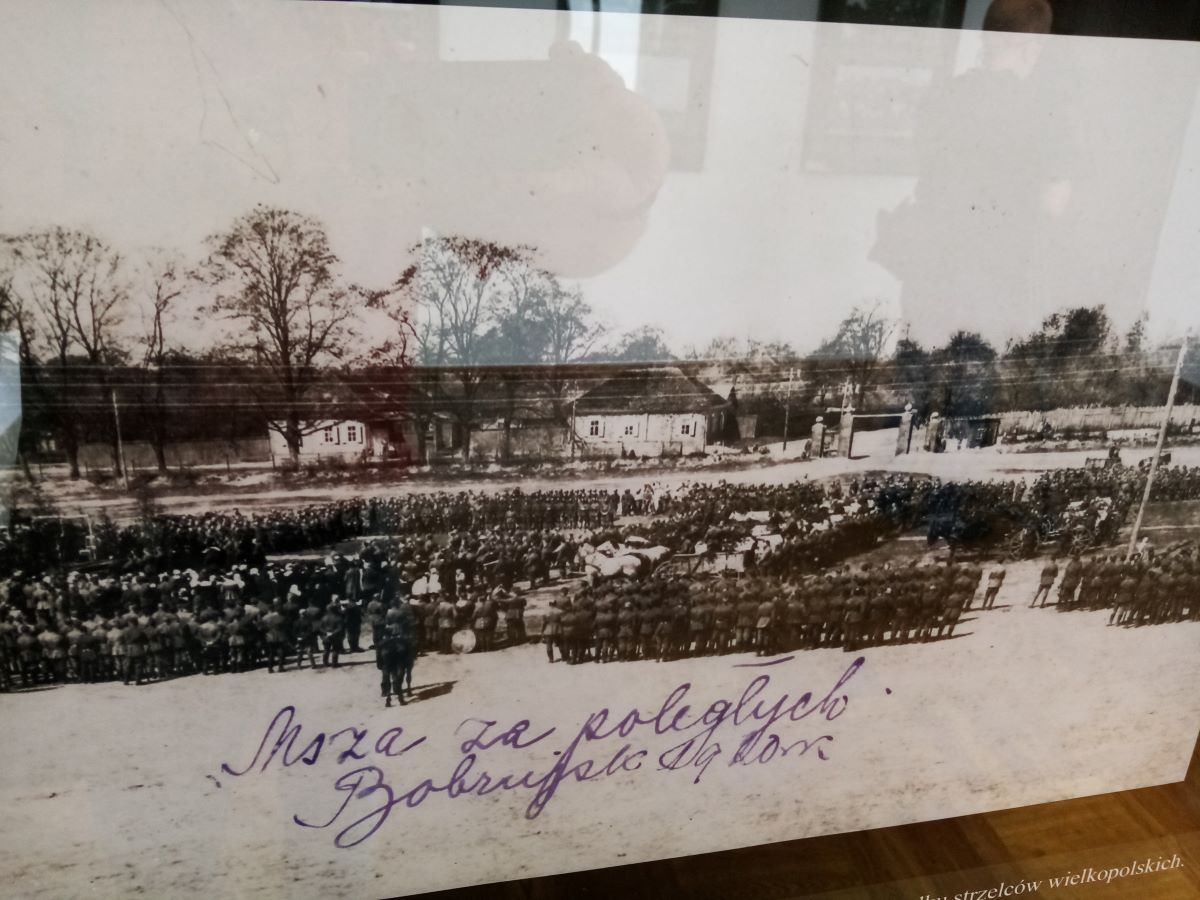 Msza za poległych.
Bobrujsk 1920 r.
strzelców wielkopolskich.